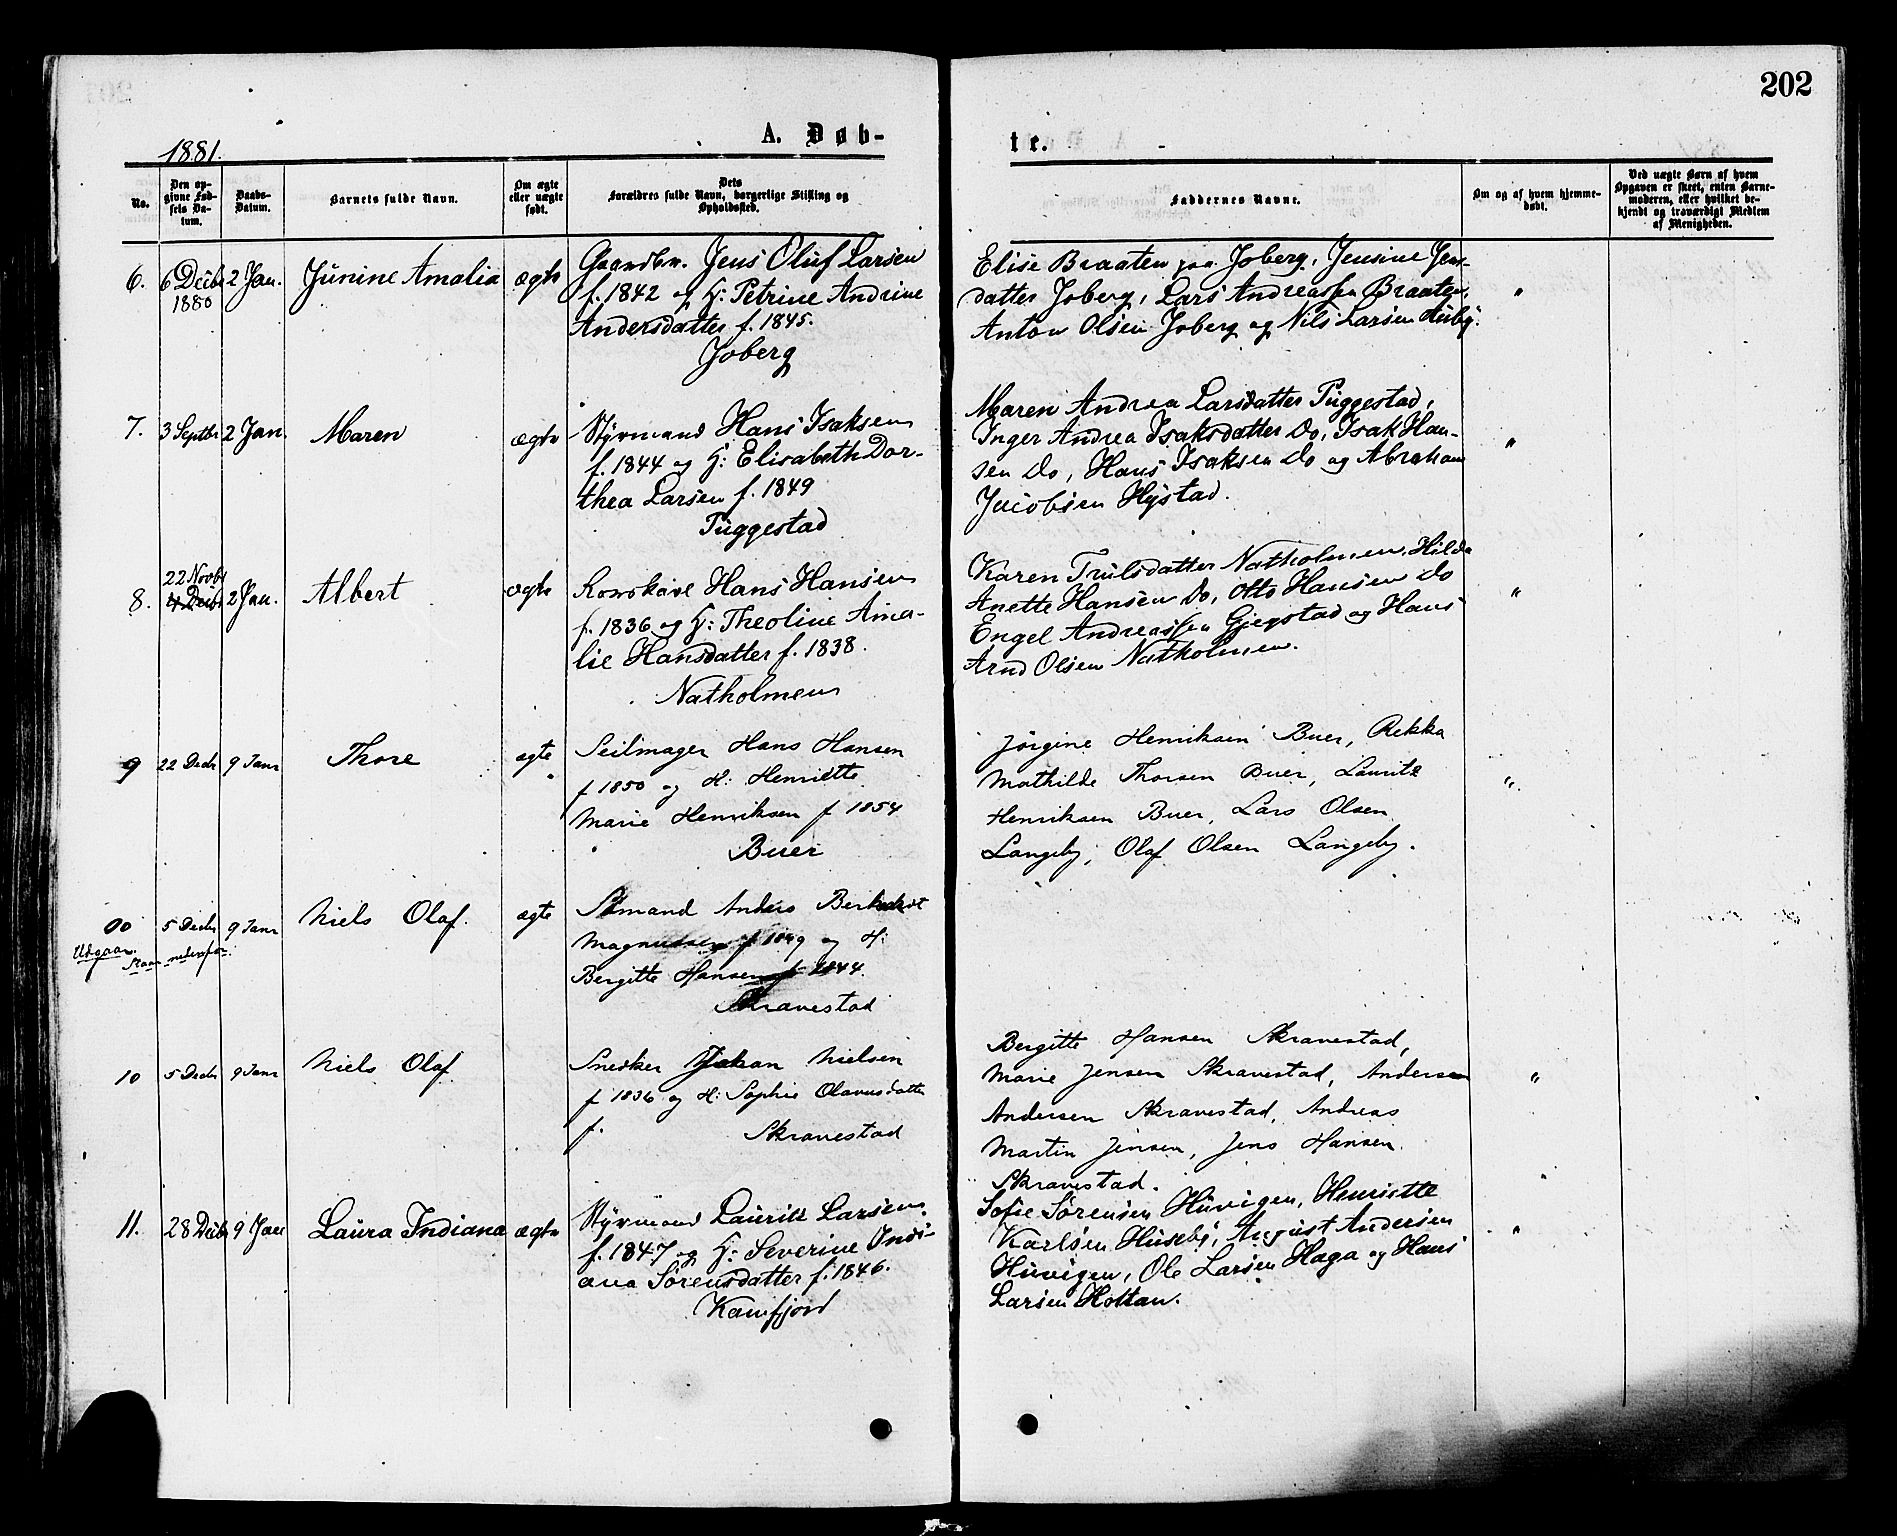 202
1881.
A. Døb-
te.
No.
Den op-
givne Fød-
sels Da-
tum.
Daabs-
Datum.
Barnets fulde Navn.
Om ægte
eller uægte
født.
Dets
Forældres fulde Navn, borgerlige Stilling og
Opholdssted.
Faddernes Navne.
Om og af hvem hjemme-
døbt.
Ved uægte Børn af hvem
Opgaven er skeet, enten Barne-
moderen, eller hvilket be-
kjendt og troværdigt Medlem
af Menigheden.
6. 6 Decbr 2 Jan. Junine Amalia ægte
1880
Gaardbr. Jens Oluf Larsen
f. 1842 og H: Petrine Andrine
Andersdatter f. 1845.
Joberg
Elise Braaten paa Joberg, Jensine Jens-
datter Joberg, Lars Andreassen Braaten,
Anton Olsen Joberg og Nils Larsen
"
7. 3 Septbr 2 Jan. Maren ægte
Styrmand Hans Isaksen
f. 1844 og H: Elisabeth Dor-
thea Larsen f. 1849
Puggestad
Maren Andrea Larsdatter Puggestad,
Inger Andrea Isaksdatter Do, Isak Han-
sen Do, Hans Isaksen Do og Abraham
Jacobsen Hystad.
"
22 Novbr
8. 4 Decbr 2 Jan. Albert ægte
Hans Hansen
f. 1836 og H: Theoline Ama-
lie Hansdatter f. 1838.
Natholmen
Karen Trulsdatter Natholmen, Hilda
Anette Hansen Do, Otto Hansen Do
Engel Andreassen Gjegstad og Hans
Arnd Olsen Natholmen.
"
9 22 Decbr 9 Janr Thore ægte
Seilmager Hans Hansen
f 1850 og H: Henriette
Marie Henriksen f 1854
Buer
Jørgine Henriksen Buer, Rekka
Mathilde Thorsen Buer, Lauritz
Henriksen Buer, Lars Olsen
Langeby, Olaf Olsen Langeby.
"
00 5 Decbr 9 Janr Niels Olaf. ægte
Udgaar. Staar nedenfor.
Sømand Anders
Magnussen f 1849 og H:
Bergitte Hansen f 1844.
Skravestad
10 5 Decbr 9 Janr Niels Olaf
Snedker Johan Nielsen
f 1836 og H: Sophie Olavusdatter
f.
Skravestad
Bergitte Hansen Skravestad,
Marie Jensen Skravestad, Andersen
Andersen Skravestad, Andreas
Martin Jensen, Jens Hansen
Skravestad.
"
11. 28 Decbr 9 Jan Laura Indiana ægte
Styrmand Lauritz Larsen
f. 1847 og H: Severine Indi-
ana Sørensdatter f. 1846.
Kamfjord
Sofie Sørensen Huvigen, Henriette
Karlsen Huseby, August Andersen
Huvigen, Ole Larsen Haga og Hans
Larsen Hottan.
"